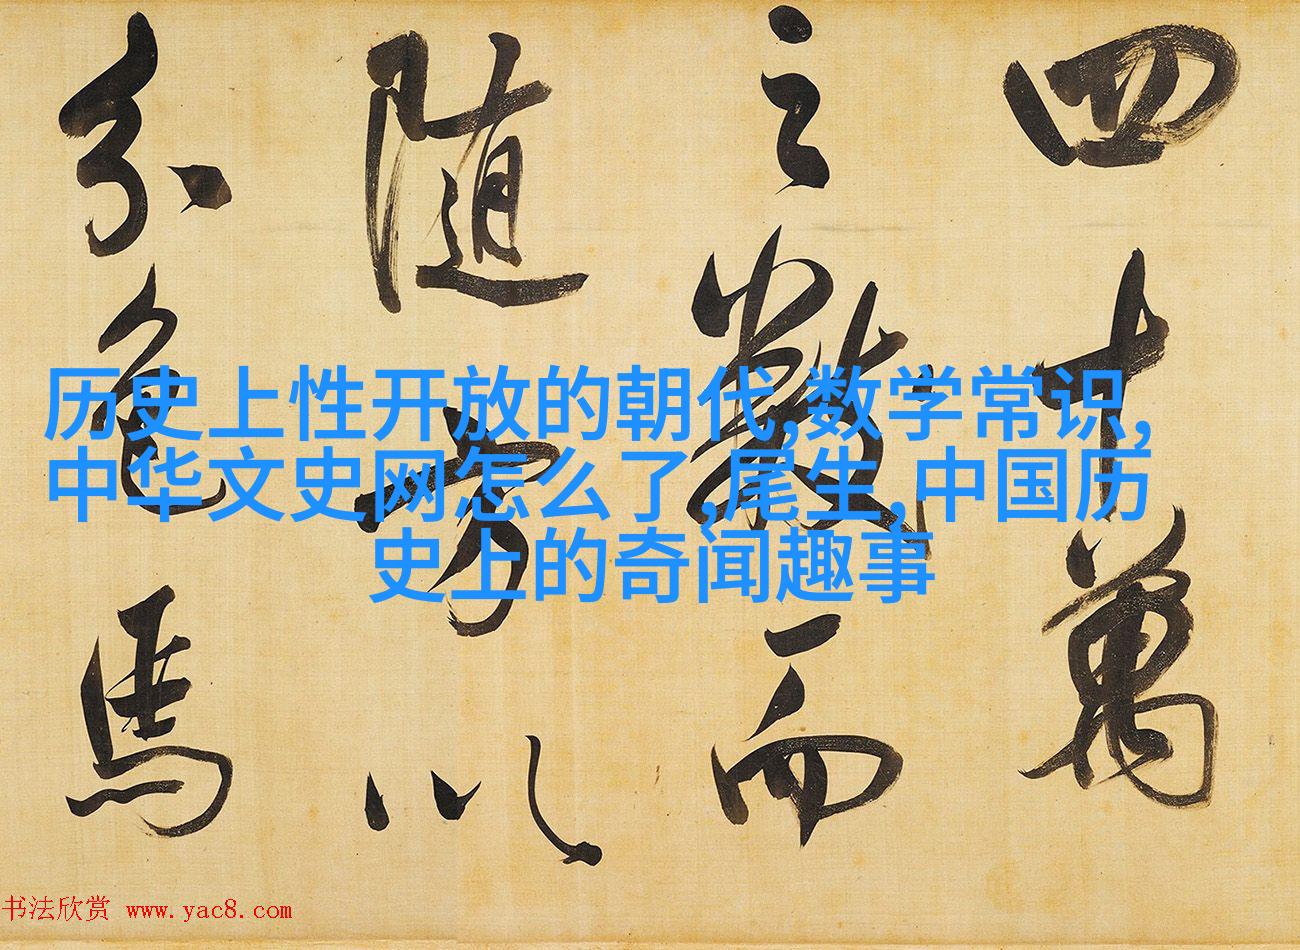 四十萬
之數而
随方以
分色馬
历史上性开放的朝代,数学常识,
中华文史网怎么了,尾生,中国历
史上的奇闻趣事
书法欣赏 www.yac8.com